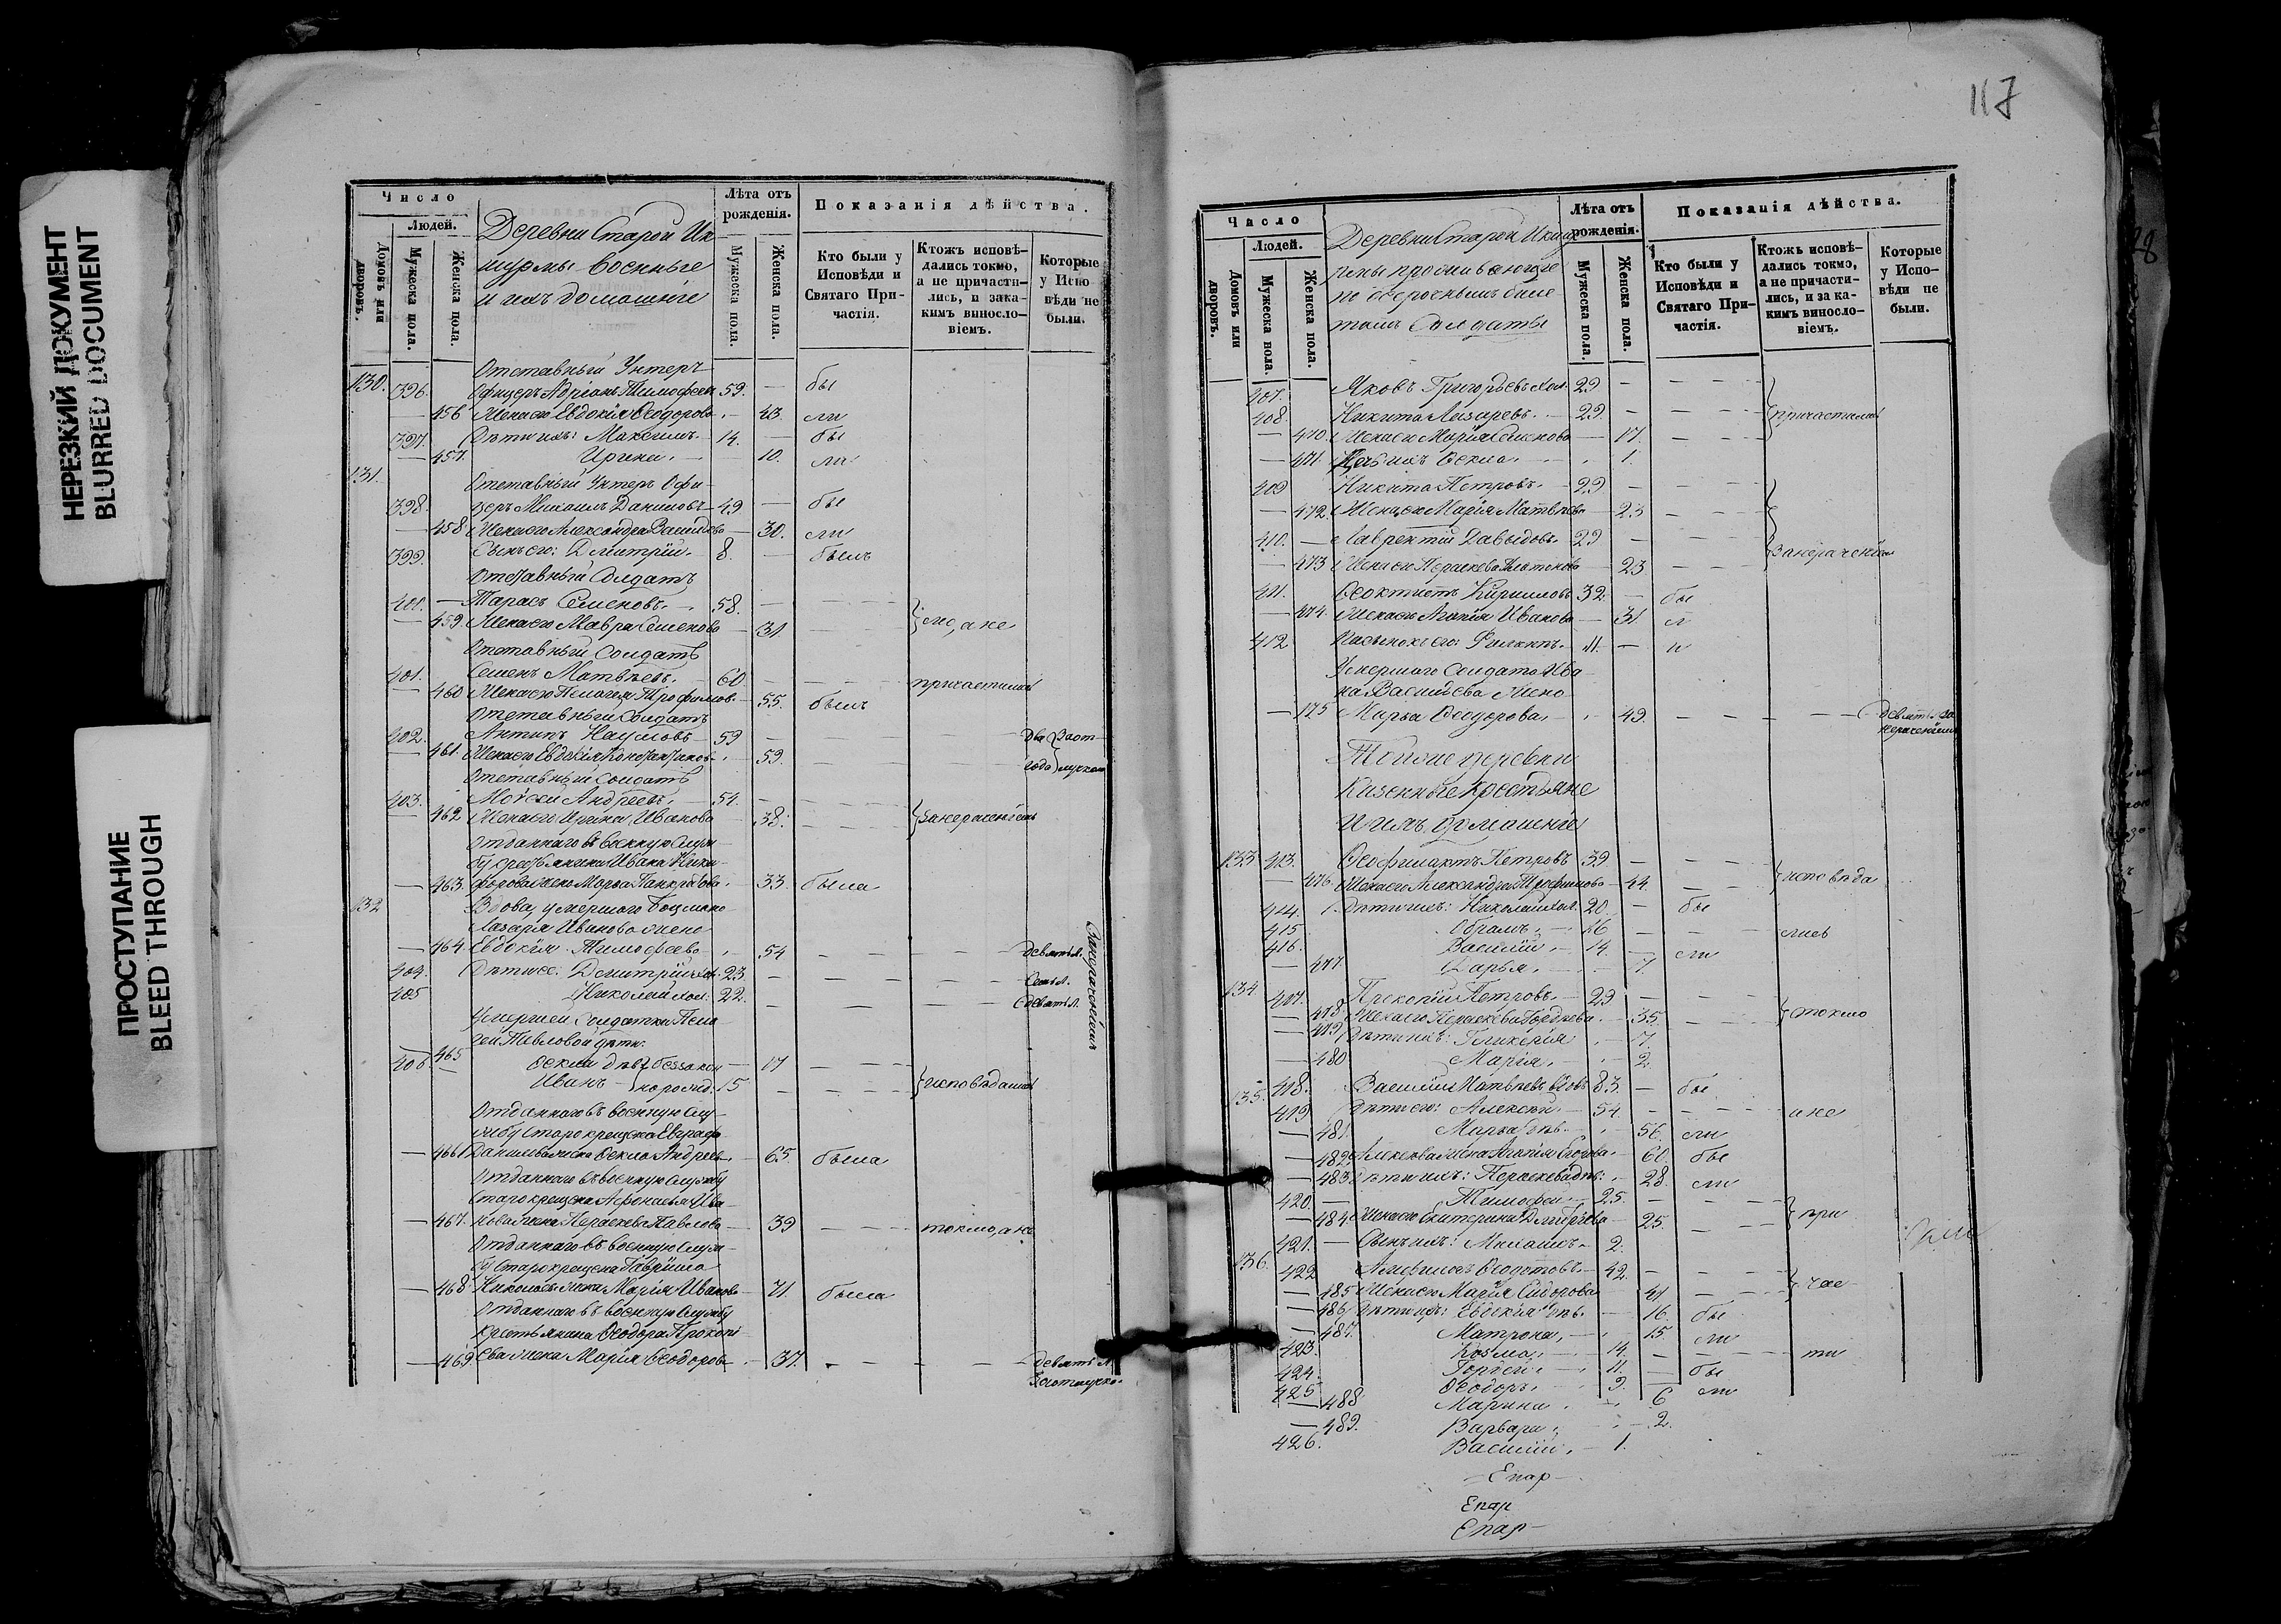 НЕРЕЗКИЙ ДОКУМЕНТ
BLURRED DOCUMENT
ПРОСТУПАНИЕ
BLEED THROUGH
Число
Людей.
Домовъ или дворовъ.
Мужеска пола.
Женска пола.
Деревни Старой Ик-
шурмы военные
и ихъ домашніе
Лѣта отъ рожденія.
Мужеска пола.
Женска пола.
Показанія дѣйства.
Кто были у Исповѣди и Святаго Причастія.
Ктожъ исповѣдались токмо, а не причастились, и закакимъ винословіемъ.
Которые у Исповѣди не были.
130. Отставный Унтеръ
396. Офицеръ Адріанъ Тимофеевъ 59. — бы
— 456 Жена его Евдокія Ѳеодорова — 43. ли
397. Дѣти ихъ: Максимъ. 14. — бы
— 457. Ирина. — 10. ли
131. Отставный Унтеръ Офи-
398. церъ Михаилъ Даниловъ 49 — бы
— 458 Жена его Александра Васильева — 30. ли
399. Сынъ его: Дмитрій. 8. — былъ
Отставный Солдатъ
401. — Тарасъ Семеновъ. 58. —
— 459 Жена его Мавра Семенова — 31
Отставный Солдатъ
401. Семенъ Матвѣевъ. 60 — причастились
— 460 Жена его Пелагея Трофимов. — 55. былъ
Отставный Солдатъ
402. Антипъ Наумовъ 59 — два
— 461. Жена его Евдокія — 59. года
Отставный Солдатъ
403. Мойсей Андреевъ. 51. —
— 462 Жена его Ирина Иванова — 38. занераченіемъ
Отданнаго въ военную служ-
бу крестьянина Ивана Ники-
— 463. форова жена Марѳа Панкратова. — 33. была
132 Вдова, умершаго боцмана
Лазаря Иванова жена
— 464. Евдокія Тимофеева — 54 девять л.
404. Дѣти ее: Дмитрій хол. 23. — семь л.
405 Николай хол. 22. — девять л.
Занераченіемъ
Умершей Солдатки Пела-
геи Павловой дѣти:
465 Ѳекла дѣв. беззакон — 17
406 Иванъ норожд. 15 исповѣдались
Отданнаго въ военную слу-
жбу старокрещена Евграфа
— 466 Данилова жена Ѳекла Андреев. — 65. была
Отданнаго въ военную службу
старокрещена Афонасья Ива-
— 467. нова жена Параскева Павлова — 39 токмо, а не
Отданнаго въ военную служ-
бу старокрещена Гаврила
— 468 Николаева жена Марія Иванова — 71. была
Отданнаго въ военную службу
крестьянина Ѳеодора Прокопі-
— 469 ева жена Марія Ѳеодоров — 37. девять л.
117
Число
Людей.
Домовъ или дворовъ.
Мужеска пола.
Женска пола.
Деревни Старой Икшур-
мы проживающіе
по безсрочнымъ биле-
тамъ Солдаты
Лѣта отъ рожденія.
Мужеска пола.
Женска пола.
Показанія дѣйства.
Кто были у Исповѣди и Святаго Причастія.
Ктожъ исповѣдались токмо, а не причастились, и за какимъ винословіемъ.
Которые у Исповѣди не были.
407. Яковъ Григорьевъ хол. 29 —
408. Никита Лазаревъ. 29. — причастились
— 470. Жена его Марія Семенова — 17.
— 471. Дочь ихъ Ѳекла. 1.
409 Никита Петровъ. 29 —
— 472. Жена его Марія Матвѣева — 23
410. — Лаврентій Давыдовъ. 29 — занераченіемъ
— 473 Жена его Параскева Платонова — 23
411. Ѳеоктистъ Кирилловъ 32. — бы
— 474. Жена его Агапія Иванова — 31 л
412 Пасынокъ его: Филиппъ. 11. — и
Умершаго Солдата Ива-
на Васильева жена
— 475 Марѳа Ѳеодорова. 49. — девять л. за
нераченіемъ
Тойже деревни
Казенные крестьяне
и ихъ домашніе
133 413. Ѳеофилактъ Петровъ 39. —
— 476. Жена его Александра Трофимова — 44. исповѣда
414. Дѣти ихъ: Николай хол. 20. — бы
415 Абрамъ. 16 — лись
416. Василій. 14. — ли
— 477 Дарья. 7.
134 417. Прокопій Петровъ. 29 —
— 478 Жена его Параскева Гордѣева. — 35. токмо
— 479 Дѣти ихъ: Гликерія. 7.
— 480 Марія. 2.
135. 418. Василій Матвѣевъ вдовъ 83. — бы
419 Дѣти его: Алексѣй. 54. — а не
— 481. Марѳа дѣв. 56. ли
— 482. Алексѣева жена Агапія Егорова. — 60. бы
— 483 Дѣти ихъ: Параскева дѣв. 28. ли
420. — Тимофей. 25. —
— 484 Жена его Екатерина Дмитріева 25. при
421. — Сынъ ихъ: Михаилъ. 2.
136. 422 Анфилогъ Ѳедотовъ. 42. —
— 485 Жена его Марія Сидорова 41 час
— 486 Дѣти ихъ: Евдокія дѣв. — 16. бы
— 487. Матрона. 15. ли
423. Козма. 14. — ти
424. Гордей. 11. — бы
425 Ѳеодоръ. 9. ли
— 488 Марина. 6
— 489. Варвара. 2.
426. Василій. 1.
Епар
Епар
Епар